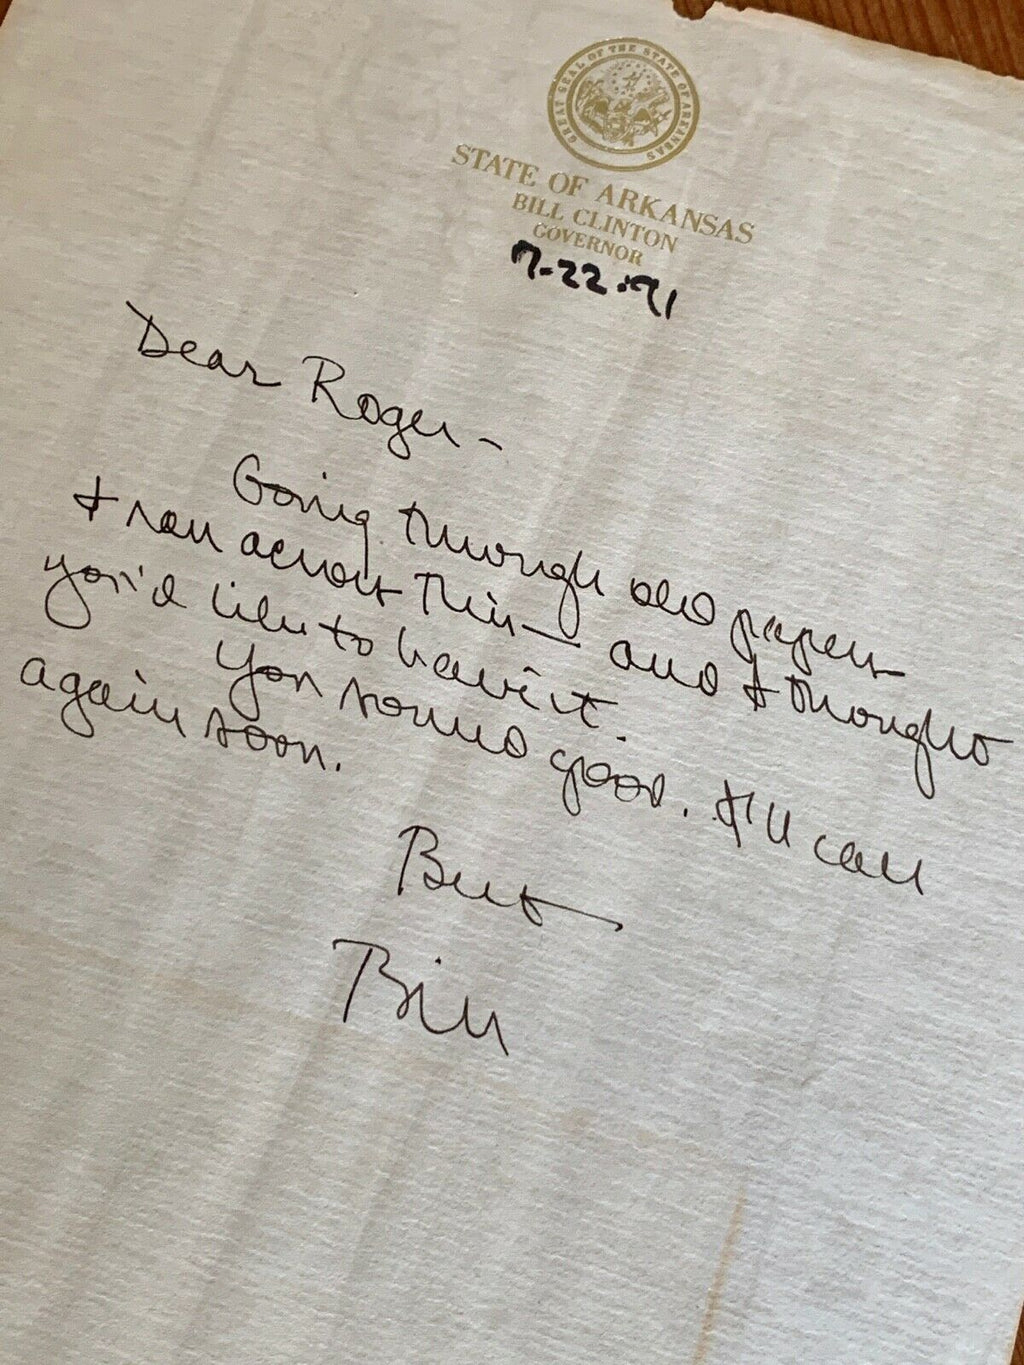 GREAT SEAL OF THE STATE OF ARKANSAS
STATE OF ARKANSAS
BILL CLINTON
GOVERNOR
7-22-91
Dear Roger -
Going through old papers
I ran across this - and I thought
you'd like to have it.
You sound good. I'll call
again soon.
Best
Bill